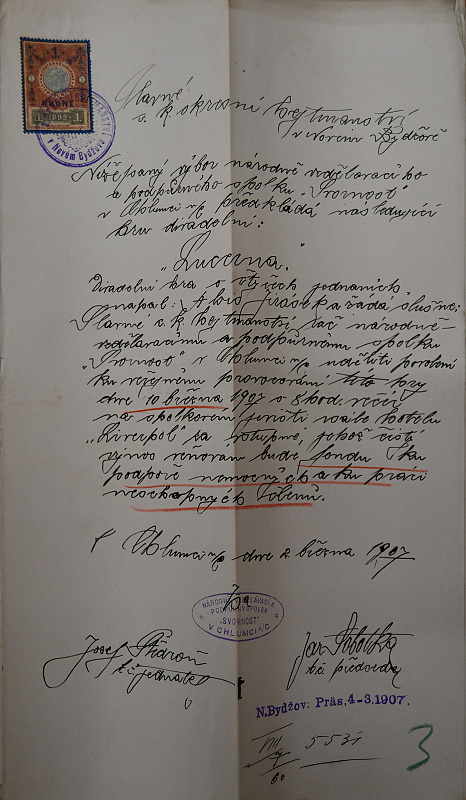 1 KRONE
1 1898 1
v Novém Bydžově
Slavné
c. k. okresní hejtmanství
v Novém Bydžově
Nížepsaný výbor národně vzdělavacího
a podpůrného spolku „Svornost"
v Chlumci n/c předkládá následující
hru divadelní:
„Lucerna."
Divadelní hra o čtyřech jednáních
napsal: Alois Jirásek a žádá slušně:
Slavné c. k. hejtmanství, rač národně-
vzdělavacímu a podpůrnému spolku
„Svornost" v Chlumci n/c uděliti povolení
ku veřejnému provozování této hry
dne 10 března 1907 o 8 hod. večer
na spolkovém jevišti v sále hotelu
„Liverpol" za vstupné, jehož čistý
výnos věnován bude fondu ku
podpoře nemocných a ku práci
neschopných členů.
V Chlumci n/c dne 2. března 1907
Za
NÁRODNĚ VZDĚLÁVACÍ A
PODPŮRNÝ SPOLEK
„SVORNOST"
V CHLUMCI N/C.
Josef
t. č. jednatel
Jan Sobotka
t. č. předseda
N. Bydžov: Präs. 4-3. 1907.
VIII 5531
3